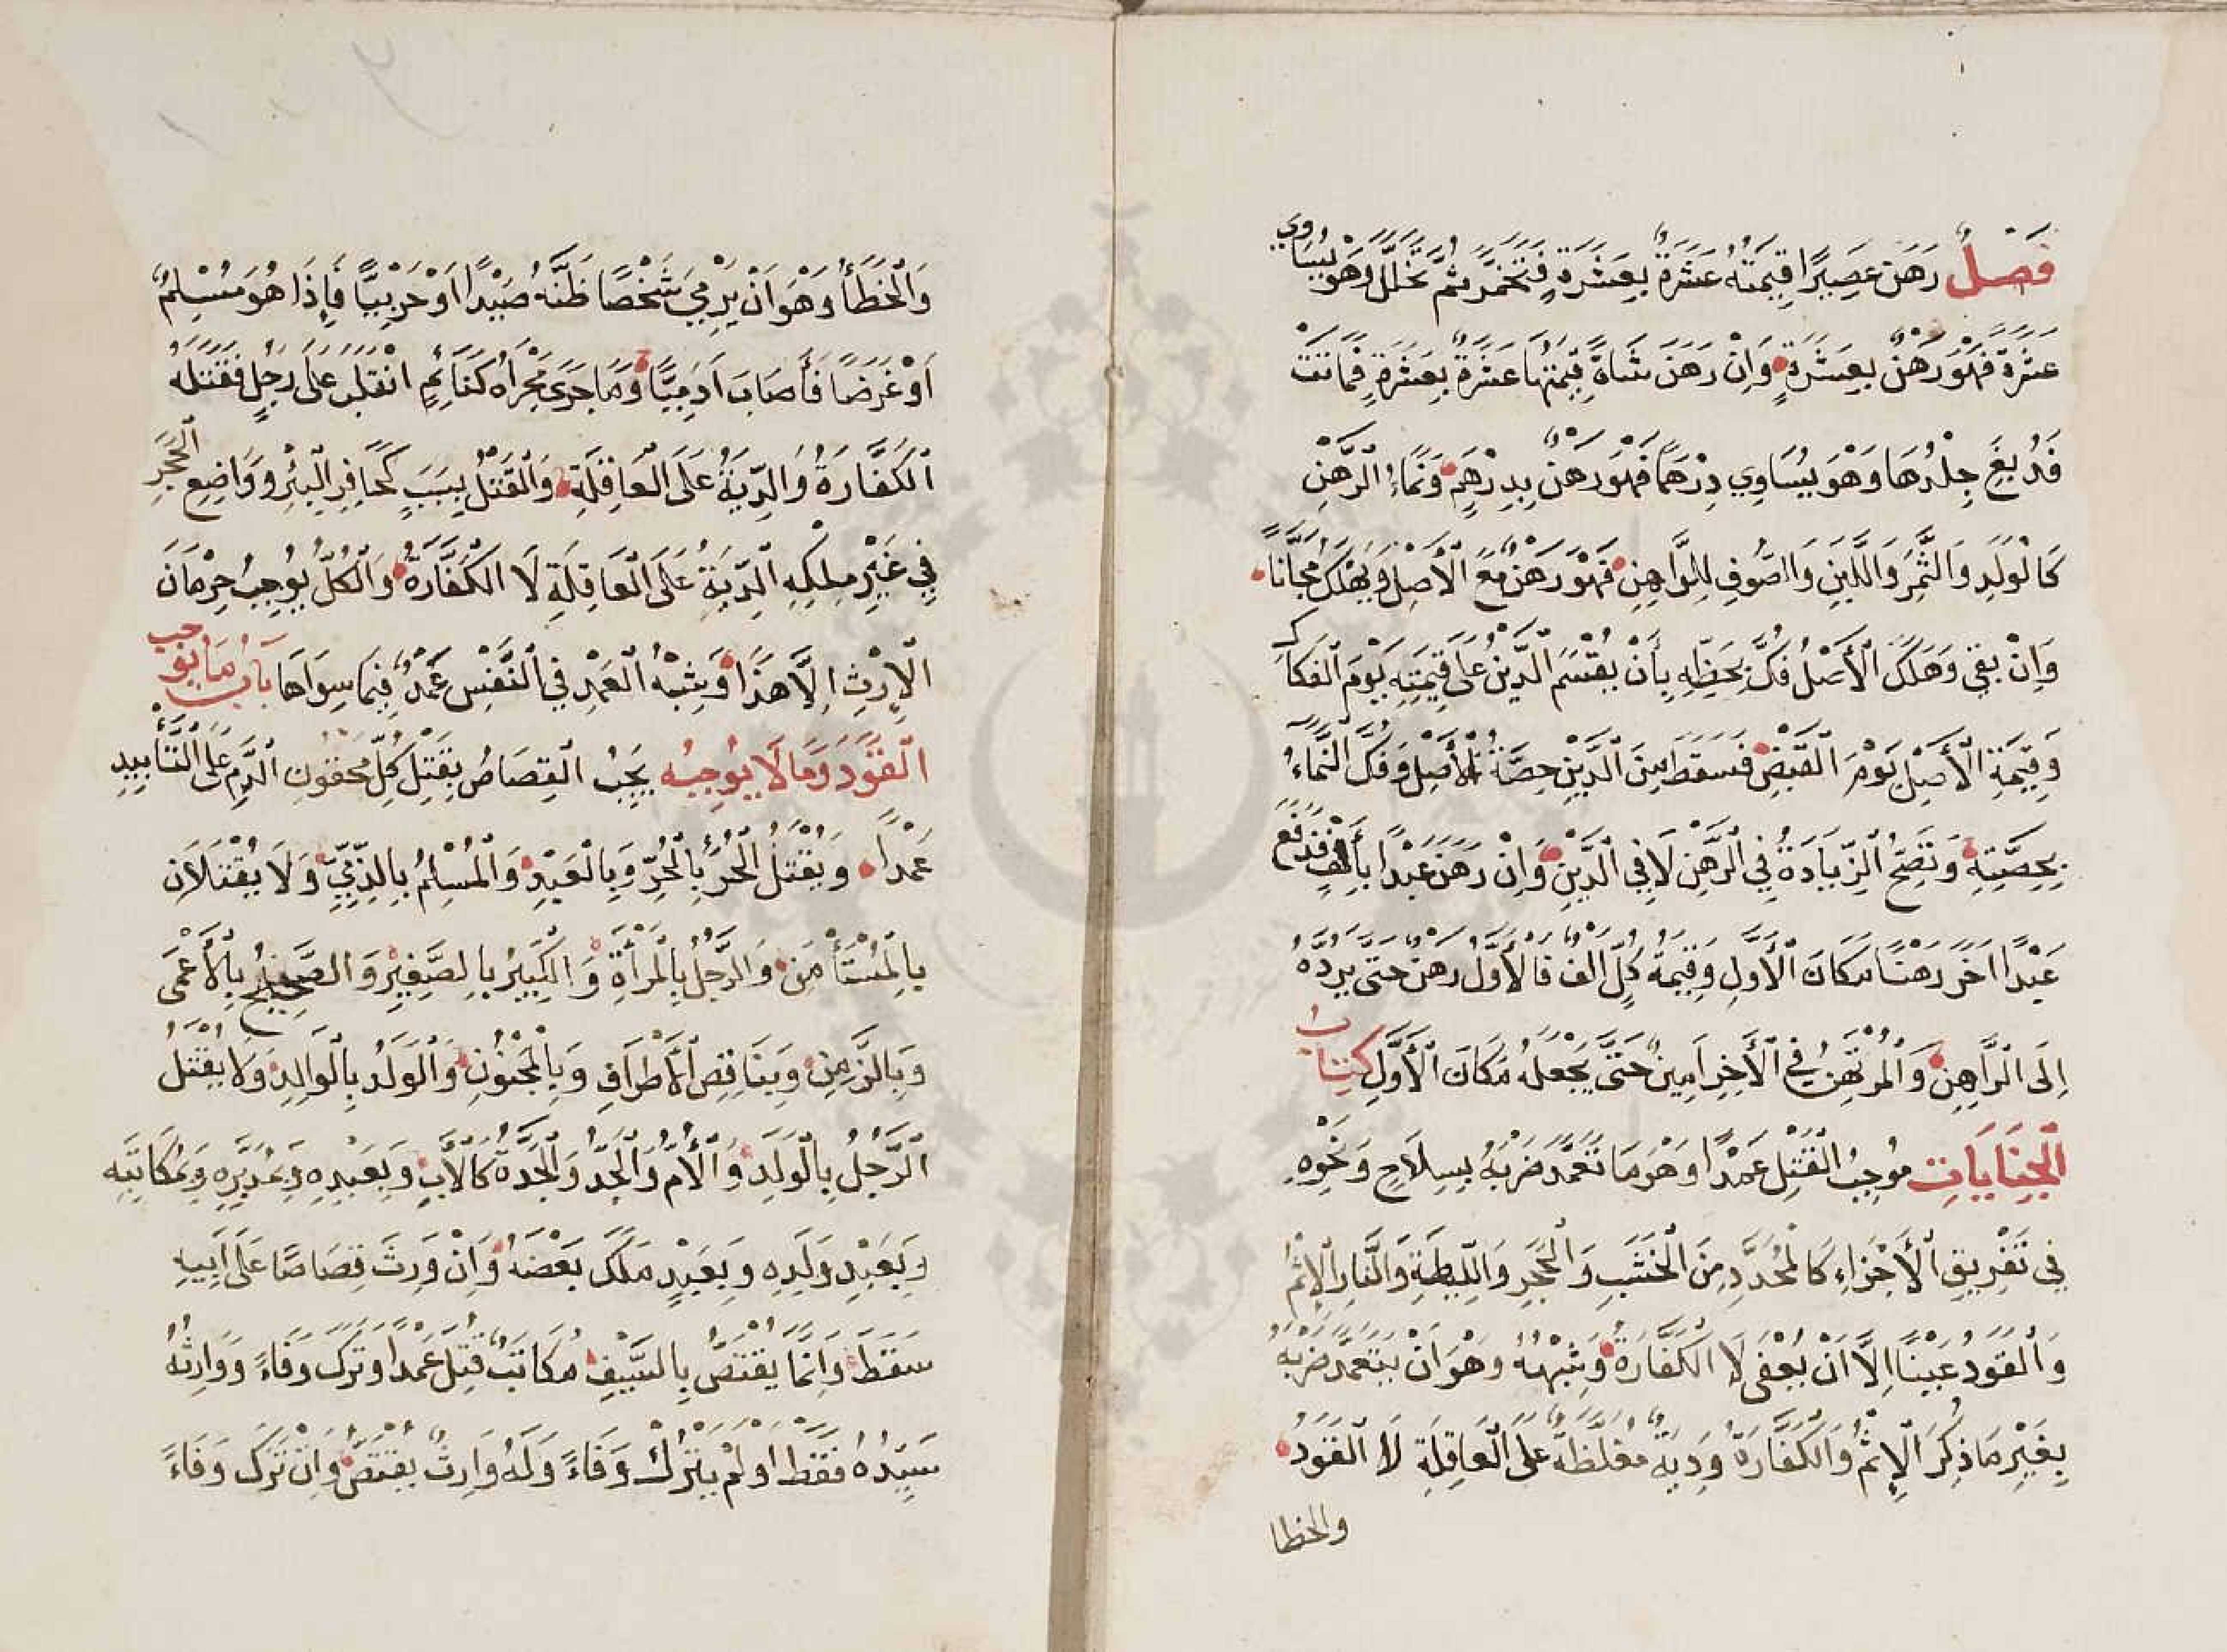 فَصْلٌ رَهَنَ عَصِيرًا قِيمَتُهُ عَشَرَةٌ بِعَشَرَةٍ فَتَخَمَّرَ ثُمَّ تَخَلَّلَ وَهُوَ يُسَاوِي
عَشَرَةً فَهُوَ رَهْنٌ بِعَشَرَةٍ وَاِنْ رَهَنَ شَاةً قِيمَتُهَا عَشَرَةٌ بِعَشَرَةٍ فَمَاتَتْ
فَدُبِغَ جِلْدُهَا وَهُوَ يُسَاوِي دِرْهَمًا فَهُوَ رَهْنٌ بِدِرْهَمٍ وَنَمَاءُ الرَّهْنِ
كَالْوَلَدِ وَالثَّمَرِ وَاللَّبَنِ وَالصُّوفِ لِلرَّاهِنِ فَهُوَ رَهْنٌ مَعَ الْأَصْلِ وَيَهْلَكُ مَجَّانًا
وَاِنْ بَقِيَ وَهَلَكَ الْأَصْلُ فُكَّ بِحَظِّهِ بِأَنْ يُقْسَمَ الدَّيْنُ عَلَى قِيمَتِهِ يَوْمَ الْفِكَاكِ
وَقِيمَةِ الْأَصْلِ يَوْمَ الْقَبْضِ فَسَقَطَ مِنَ الدَّيْنِ حِصَّةُ الْأَصْلِ وَفُكَّ النَّمَاءُ
بِحِصَّتِهِ وَتَصِحُّ الزِّيَادَةُ فِي الرَّهْنِ لَا فِي الدَّيْنِ وَاِنْ رَهَنَ عَبْدًا بِأَلْفٍ فَدَفَعَ
عَبْدًا اٰخَرَ رَهْنًا مَكَانَ الْأَوَّلِ وَقِيمَةُ كُلٍّ اَلْفٌ فَالْأَوَّلُ رَهْنٌ حَتَّى يَرُدَّهُ
اِلَى الرَّاهِنِ وَالْمُرْتَهِنُ فِي الْأٰخِرِ اَمِينٌ حَتَّى يَجْعَلَهُ مَكَانَ الْأَوَّلِ كِتَابُ
الْجِنَايَاتِ مُوجِبُ الْقَتْلِ عَمْدًا وَهُوَ مَا تَعَمَّدَ ضَرْبَهُ بِسِلَاحٍ وَنَحْوِهِ
فِي تَفْرِيقِ الْأَجْزَاءِ كَالْمُحَدَّدِ مِنَ الْخَشَبِ وَالْحَجَرِ وَاللِّيطَةِ وَالنَّارِ الْاِثْمُ
وَالْقَوَدُ عَيْنًا اِلَّا اَنْ يُعْفَى لَا الْكَفَّارَةُ وَشِبْهُهُ وَهُوَ اَنْ يَتَعَمَّدَ ضَرْبَهُ
بِغَيْرِ مَا ذُكِرَ الْاِثْمُ وَالْكَفَّارَةُ وَدِيَةٌ مُغَلَّظَةٌ عَلَى الْعَاقِلَةِ لَا الْقَوَدُ
والخطا
وَالْخَطَأُ وَهُوَ اَنْ يَرْمِيَ شَخْصًا ظَنَّهُ صَيْدًا اَوْ حَرْبِيًّا فَاِذَا هُوَ مُسْلِمٌ
اَوْ غَرَضًا فَأَصَابَ اٰدَمِيًّا وَمَا جَرَى مَجْرَاهُ كَنَائِمٍ انْقَلَبَ عَلَى رَجُلٍ فَقَتَلَهُ
الْكَفَّارَةُ وَالدِّيَةُ عَلَى الْعَاقِلَةِ وَالْقَتْلُ بِسَبَبٍ كَحَافِرِ الْبِئْرِ وَوَاضِعِ الْحَجَرِ
فِي غَيْرِ مِلْكِهِ الدِّيَةُ عَلَى الْعَاقِلَةِ لَا الْكَفَّارَةُ وَالْكُلُّ يُوجِبُ حِرْمَانَ
الْاِرْثِ اِلَّا هَذَا وَشِبْهُ الْعَمْدِ فِي النَّفْسِ عَمْدٌ فِيمَا سِوَاهَا بَابُ مَا يُوجِبُ
الْقَوَدَ وَمَا لَا يُوجِبُهُ يَجِبُ الْقِصَاصُ بِقَتْلِ كُلِّ مَحْقُونِ الدَّمِ عَلَى التَّأْبِيدِ
عَمْدًا وَيُقْتَلُ الْحُرُّ بِالْحُرِّ وَبِالْعَبْدِ وَالْمُسْلِمُ بِالذِّمِّيِّ وَلَا يُقْتَلَانِ
بِالْمُسْتَأْمَنِ وَالرَّجُلُ بِالْمَرْأَةِ وَالْكَبِيرُ بِالصَّغِيرِ وَالصَّحِيحُ بِالْأَعْمَى
وَبِالزَّمِنِ وَبِنَاقِصِ الْأَطْرَافِ وَبِالْمَجْنُونِ وَالْوَلَدُ بِالْوَالِدِ وَلَا يُقْتَلُ
الرَّجُلُ بِالْوَلَدِ وَالْأُمُّ وَالْجَدُّ وَالْجَدَّةُ كَالْأَبِ وَبِعَبْدِهِ وَبِمُدَبَّرِهِ وَبِمُكَاتَبِهِ
وَبِعَبْدِ وَلَدِهِ وَبِعَبْدٍ مَلَكَ بَعْضَهُ وَاِنْ وَرِثَ قِصَاصًا عَلَى اَبِيهِ
سَقَطَ وَاِنَّمَا يُقْتَصُّ بِالسَّيْفِ مُكَاتَبٌ قُتِلَ عَمْدًا وَتَرَكَ وَفَاءً وَوَارِثُهُ
سَيِّدُهُ فَقَطْ اَوْ لَمْ يَتْرُكْ وَفَاءً وَلَهُ وَارِثٌ يُقْتَصُّ وَاِنْ تَرَكَ وَفَاءً